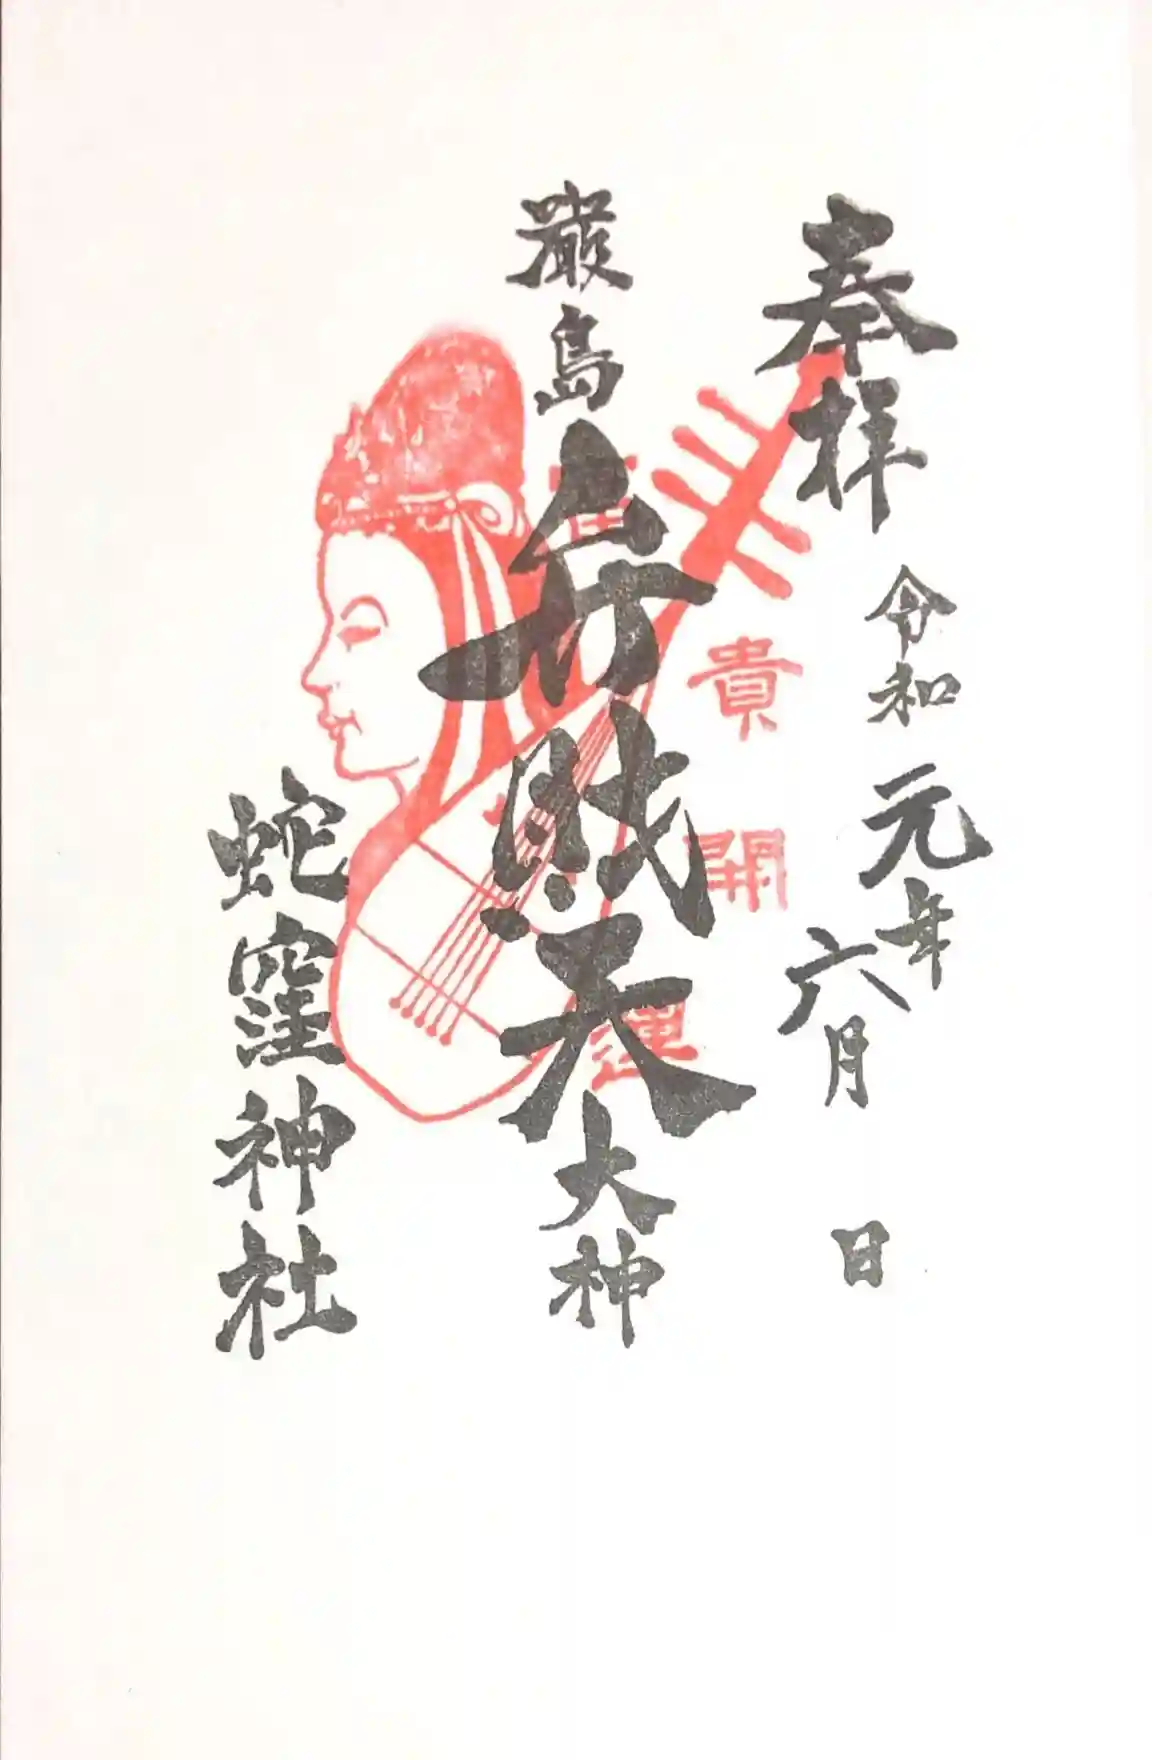 奉拝
令和元年六月 日
厳島弁財天大神
貴開運
蛇窪神社